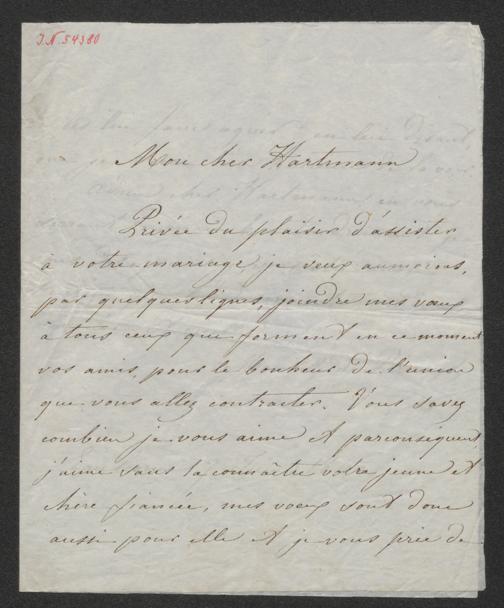 J.N. 54380
Mon cher Hartmann
Privée du plaisir d'assister
à votre mariage je veux aumoins,
par quelques lignes, joindre mes vœux
à tous ceux que forment en ce moment
vos amis, pour le bonheur de l'union
que vous allez contracter. Vous savez
combien je vous aime et parconséquent
j'aime sans la connaître votre jeune et
chère fiancée, mes voeux sont donc
aussi pour elle et je vous prie de